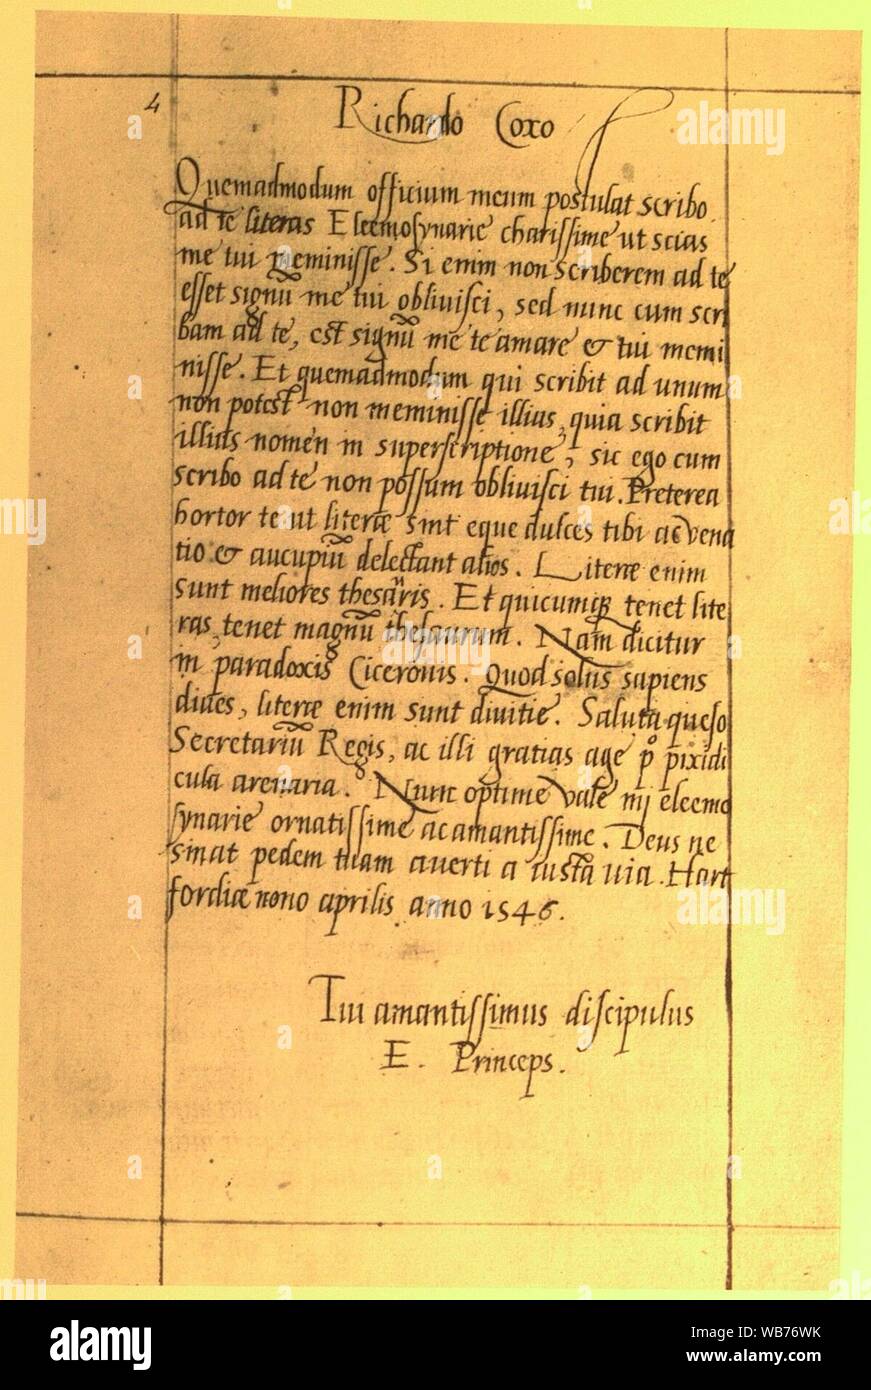 4
Richardo Coxo
Quemadmodum officium meum postulat scribo
ad te literas Eleemosynarie charissime ut scias
me tui meminisse. Si enim non scriberem ad te
esset signũ me tui oblivisci, sed nunc cum scri
bam ad te, est signũ me te amare & tui memi
nisse. Et quemadmodum qui scribit ad unum
non potest non meminisse illius, quia scribit
illius nomen in superscriptione, sic ego cum
scribo ad te non possum oblivisci tui. Preterea
hortor te ut literæ sint eque dulces tibi ac vena
tio & aucupiũ delectant alios. Literæ enim
sunt meliores thesauris. Et quicumqȝ tenet lite
ras, tenet magnũ thesaurum. Nam dicitur
in paradoxis Ciceronis. Quod solus sapiens
dives, literæ enim sunt divitie. Saluta queso
Secretariũ Regis, ac illi gratias age ꝓ pixidi
cula arenaria. Nunc optime vale mj eleemo
synarie ornatissime ac amantissime. Deus ne
sinat pedem tuam averti a iusta via. Hart
fordiæ nono aprilis anno 1546.
Tui amantissimus discipulus
E. Princeps.
alamy
Image ID: WB76WK
www.alamy.com